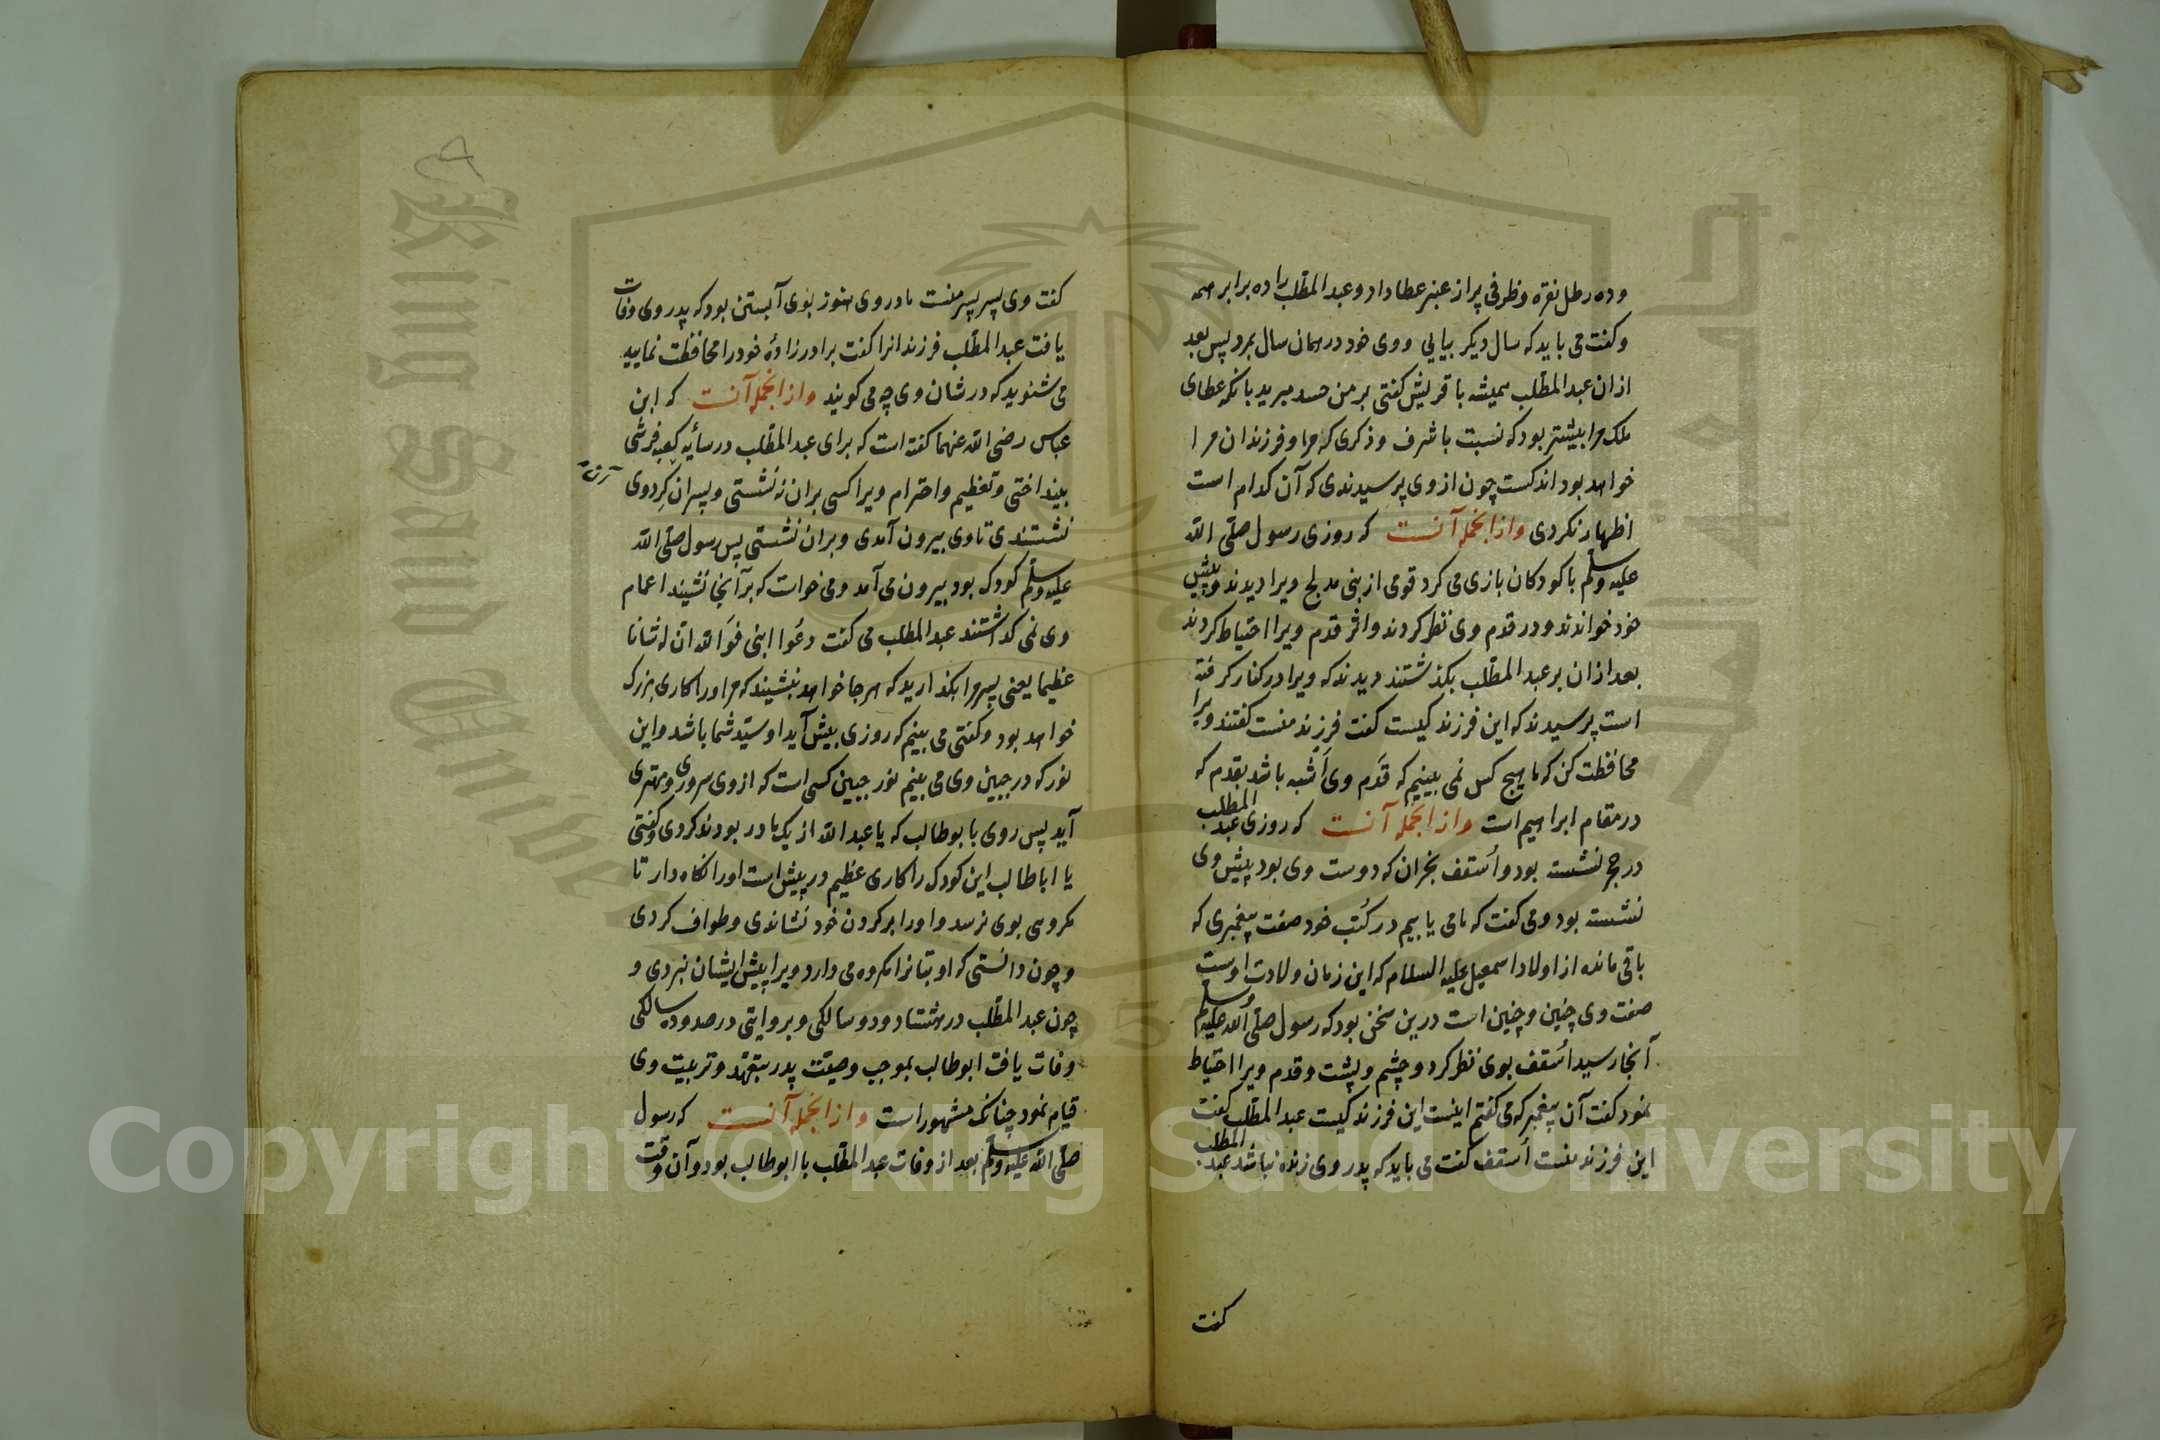 وده رطل نقره وظرفی پر از عنبر عطا داد و عبد المطلب را ده برابر همه
وکفت می باید که سال دیکر بیایی و وی خود در همان سال بمرد پس بعد
ازان عبد المطلب همیشه با قریش کفتی بر من حسد مبرید بانکه عطای
ملک مرا بیشتر بود که نسبت با شرف و ذکری که مرا و فرزندان مرا
خواهد بود اندکست چون از وی پرسیدندی که آن کدام است
اظهار نکردی واز انجمله آنست که روزی رسول صلی الله
علیه وسلم با کودکان بازی می کرد قومی از بنی مدلج ویرا دیدند وپیش
خود خواندند و در قدم وی نظر کردند واثر قدم ویرا احتیاط کردند
بعد ازان بر عبد المطلب بکذشتند دیدند که ویرا در کنار کرفته
است پرسیدند که این فرزند کیست کفت فرزند منست کفتند ویرا
محافظت کن که ما هیچ کس نمی بینیم که قدم وی اشبه باشد بقدم که
در مقام ابراهیم است واز انجمله آنست که روزی عبد المطلب
در حجر نشسته بود و اسقف نجران که دوست وی بود پیش وی
نشسته بود و می کفت که ما می یابیم در کتب خود صفت پیغمبری که
باقی مانده از اولاد اسمعیل علیه السلام که این زمان ولادت اوست
صفت وی چنین و چنین است درین سخن بود که رسول صلی الله علیه وسلم
آنجا رسید اسقف بوی نظر کرد و چشم و پشت و قدم ویرا احتیاط
نمود کفت آن پیغمبر که می کفتم اینست این فرزند کیست عبد المطلب کفت
این فرزند منست اسقف کفت می باید که پدر وی زنده نباشد عبد المطلب
کفت
کفت وی پسر پسر منست مادر وی هنوز بوی آبستن بود که پدر وی وفات
یافت عبد المطلب فرزندانرا کفت برادر زاده خود را محافظت نمایید
می شنوید که در شان وی چه می کویند واز انجمله آنست که ابن
عباس رضی الله عنهما کفته است که برای عبد المطلب در سایه کعبه فرشی
بینداختی و تعظیم واحترام ویرا کسی بران ننشستی و پسران کرد وی
نشستندی تا وی بیرون آمدی وبران نشستی پس رسول صلی الله
علیه وسلم کودک بود بیرون می آمد و می خواست که بر آنجا نشیند اعمام
وی نمی کذاشتند عبد المطلب می کفت دعوا ابنی فوالله ان له شانا
عظیما یعنی پسر مرا بکذارید که هر جا خواهد بنشیند که مر اورا کاری بزرک
خواهد بود و کفتی می بینم که روزی بیش آید او سید شما باشد واین
نور که در جبین وی می بینم نور جبین کسی است که از وی سروری و مهتری
آید پس روی با بوطالب که با عبد الله از یک مادر بودند کردی و کفتی
یا ابا طالب این کودک را کاری عظیم در پیش است اورا نکاه دار تا
مکروهی بوی نرسد و اورا بر کردن خود نشاندی وطواف کردی
و چون دانستی که او بتانرا مکروه می دارد ویرا پیش ایشان نبردی و
چون عبد المطلب در هشتاد ودو سالکی و بروایتی در صد و ده سالکی
وفات یافت ابو طالب بموجب وصیت پدر بتعهد و تربیت وی
قیام نمود چنانکه مشهور است واز انجمله آنست که رسول
صلی الله علیه وسلم بعد از وفات عبد المطلب با ابو طالب بود و آن وقت
Copyright © King Saud University
King Saud University
1957